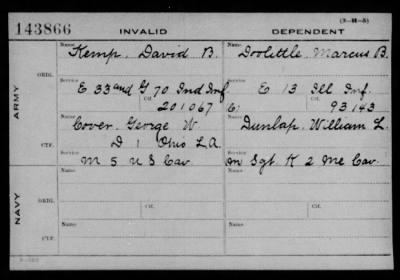 (3-M-5)
143866 INVALID DEPENDENT
Name Name
Kemp, David B. Doolittle, Marcus B.
ORIG. Service Service
E 33 and G 70 Ind Inf E 13 Ill Inf.
Ctf. Ctf.
201067 93143
ARMY
Name Name
Cover, George W. Dunlap, William L.
D 1 Ohio L.A.
CTF. Service Service
M 5 U S Cav. M Sgt K 2 Me Cav.
Name Name
ORIG. Ctf. Ctf.
NAVY
Name Name
CTF.